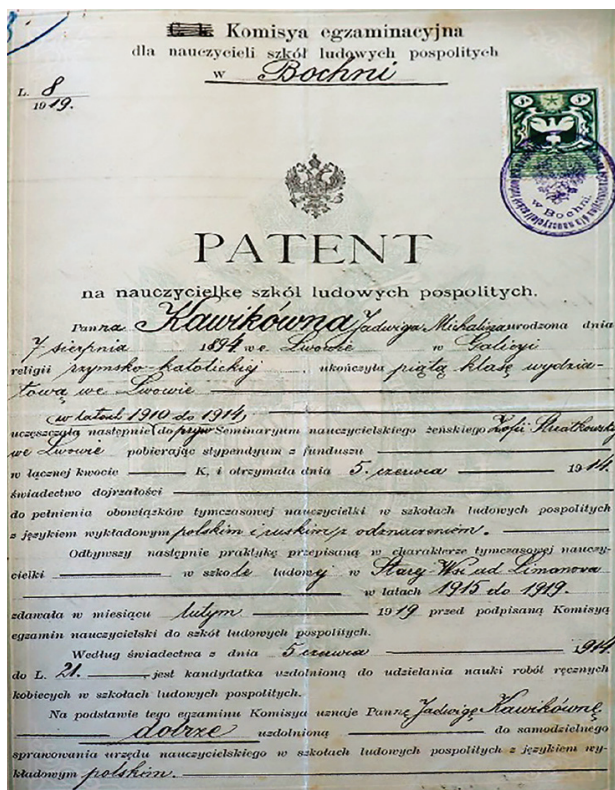 C. k. Komisya egzaminacyjna
dla nauczycieli szkół ludowych pospolitych
w Bochni
L. 8
1919.
w Bochni
PATENT
na nauczycielkę szkół ludowych pospolitych.
Panna Kawikówna Jadwiga Michalina urodzona dnia
7 sierpnia 1894 we Lwowie w Galicyi
religii rzymsko-katolickiej, ukończyła piątą klasę wydzia-
łową we Lwowie
w latach 1910 do 1914,
uczęszczała następnie do pryw Seminaryum nauczycielskiego żeńskiego Zofii Strzałkowskiej
we Lwowie pobierając stypendyum z funduszu
w łącznej kwocie K, i otrzymała dnia 5. czerwca 1914.
świadectwo dojrzałości
do pełnienia obowiązków tymczasowej nauczycielki w szkołach ludowych pospolitych
z językiem wykładowym polskim i ruskim z odznaczeniem.
Odbywszy następnie praktykę przepisaną w charakterze tymczasowej nauczy-
cielki w szkole ludowej w Starej-Wsi ad Limanova
w latach 1915 do 1919.
zdawała w miesiącu lutym 1919 przed podpisaną Komisyą
egzamin nauczycielski do szkół ludowych pospolitych.
Według świadectwa z dnia 5 czerwca 1914.
do L. 21. jest kandydatka uzdolnioną do udzielania nauki robót ręcznych
kobiecych w szkołach ludowych pospolitych.
Na podstawie tego egzaminu Komisya uznaje Pannę Jadwigę Kawikównę
dobrze uzdolnioną do samodzielnego
sprawowania urzędu nauczycielskiego w szkołach ludowych pospolitych z językiem wy-
kładowym polskim.